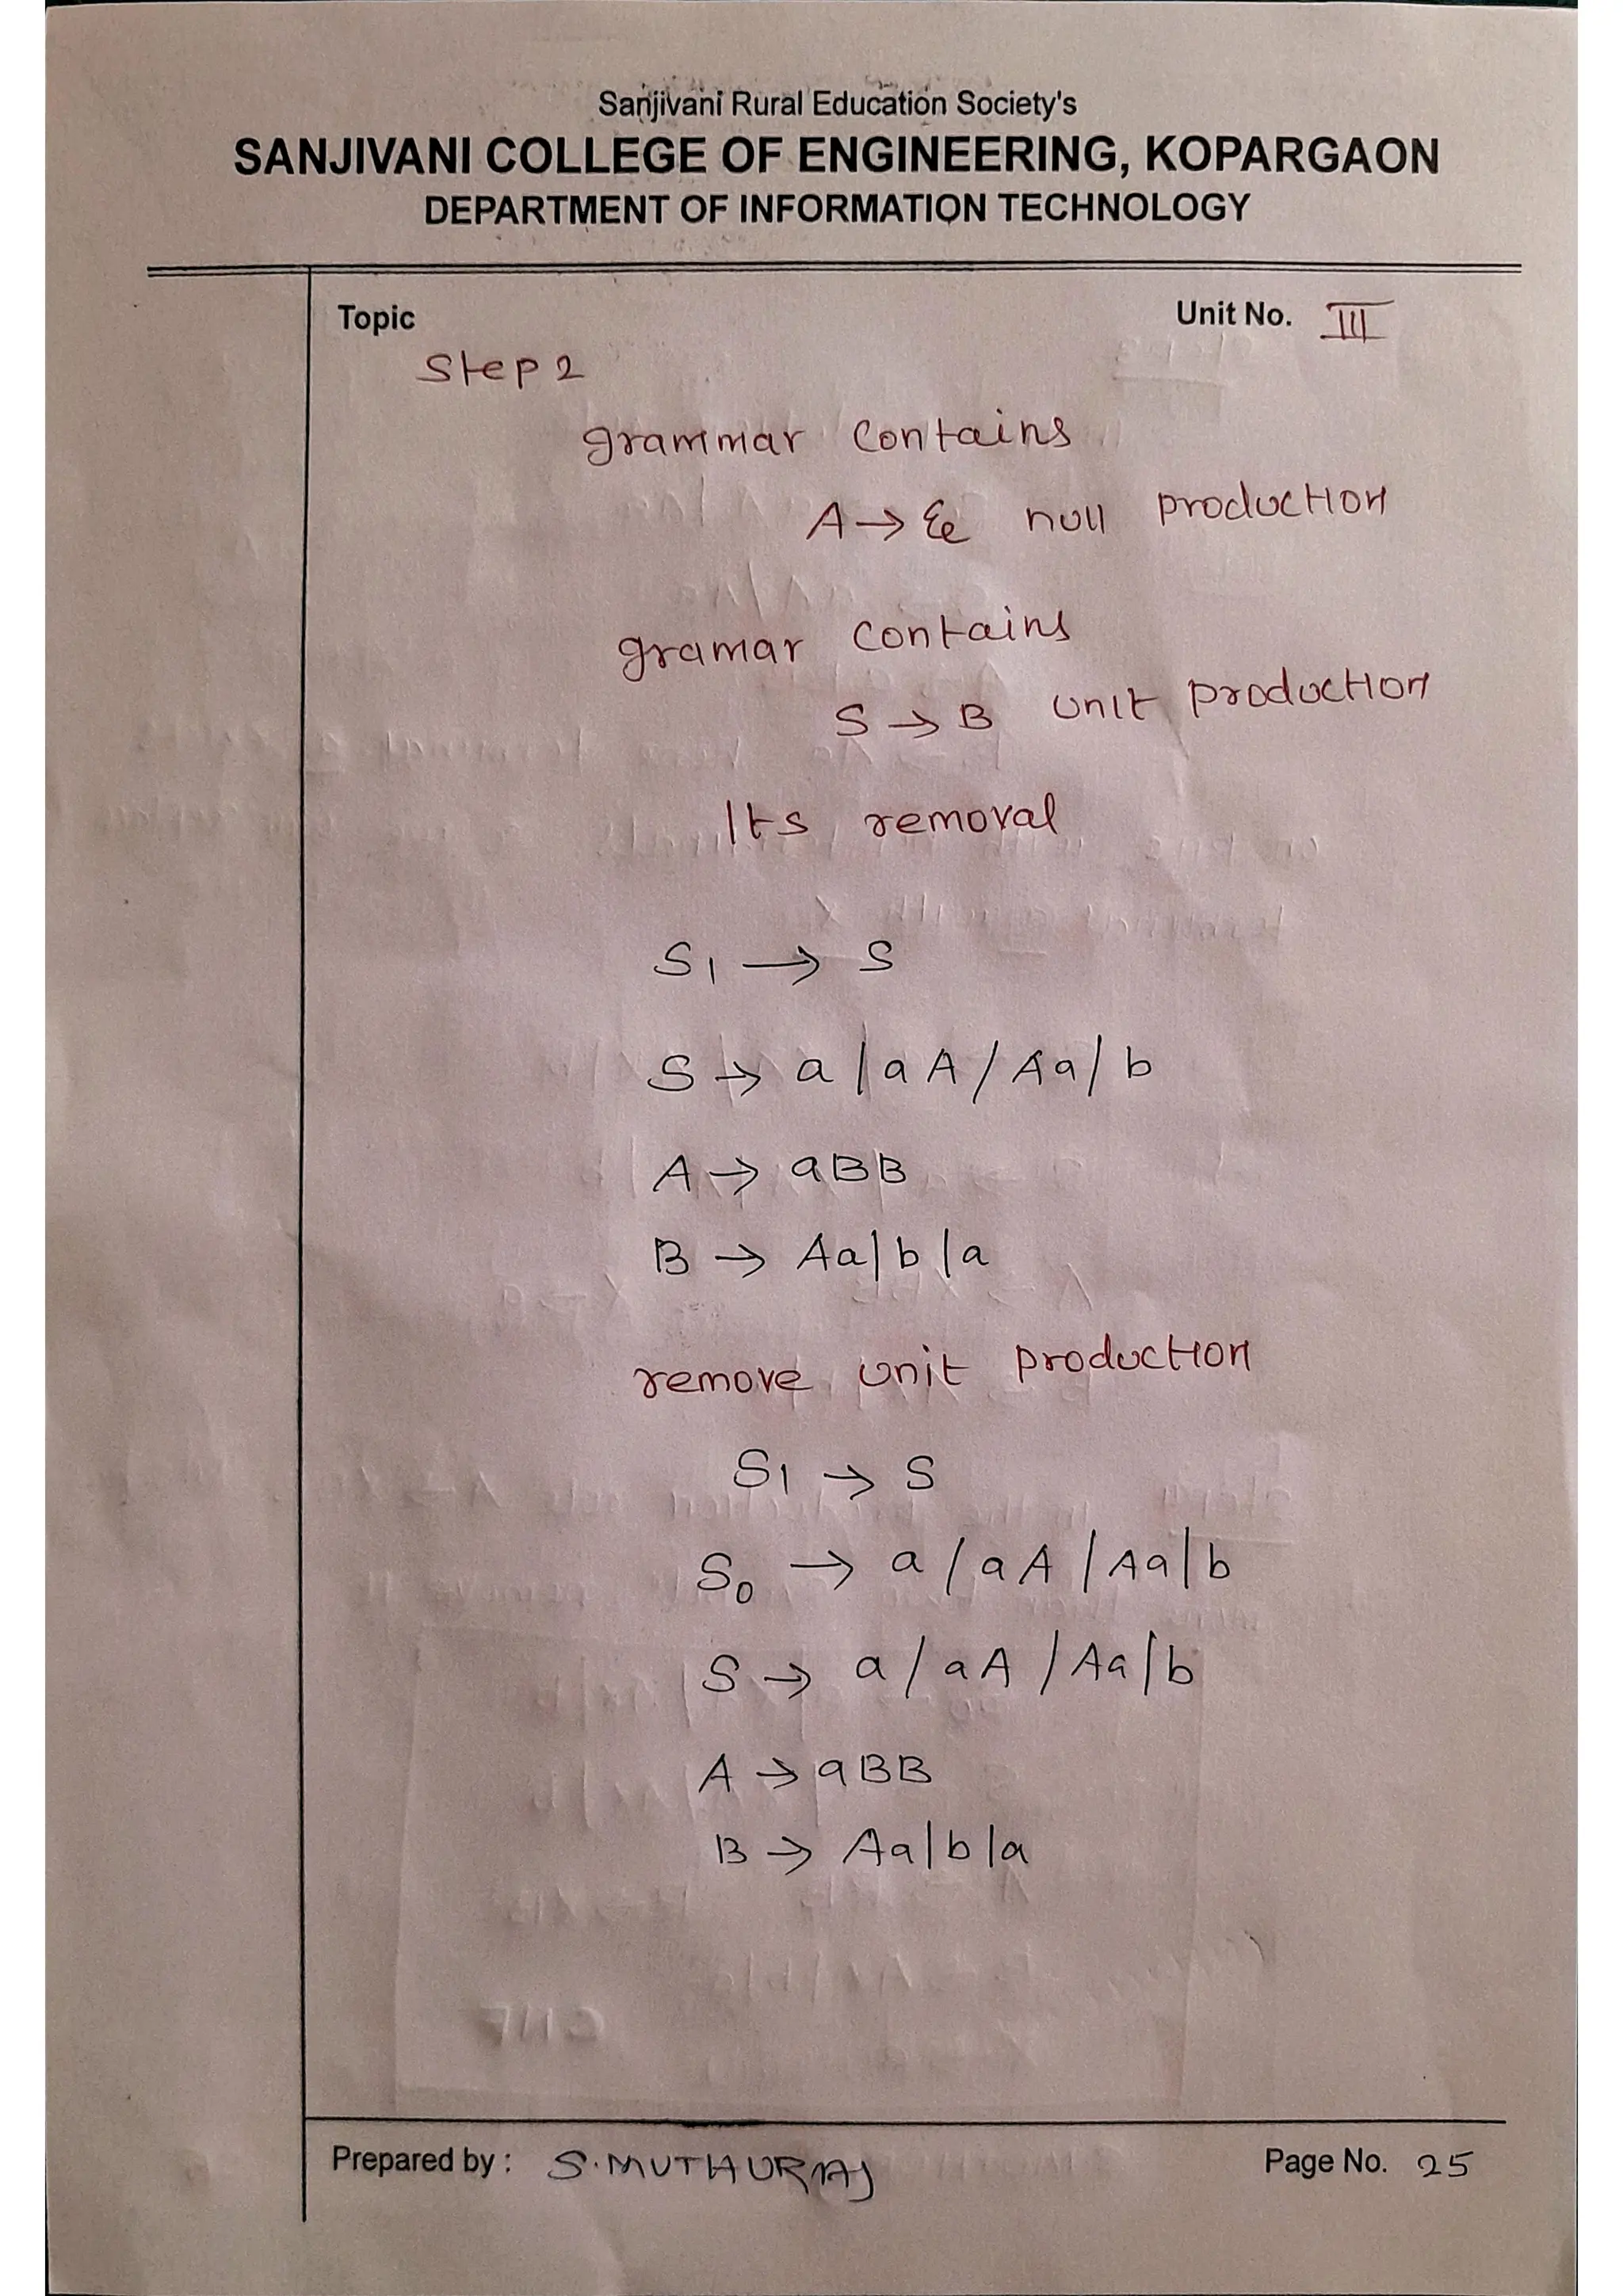 Sanjivani Rural Education Society's
SANJIVANI COLLEGE OF ENGINEERING, KOPARGAON
DEPARTMENT OF INFORMATION TECHNOLOGY
Topic Unit No. III
Step 2
grammar contains
A → ε null production
gramar contains
S → B unit production
Its removal
S1 → S
S → a | aA / Aa / b
A → aBB
B → Aa | b | a
remove unit production
S1 → S
S0 → a / aA | Aa | b
S → a / aA / Aa | b
A → aBB
B → Aa | b | a
Prepared by : S.MUTHURAJ Page No. 25